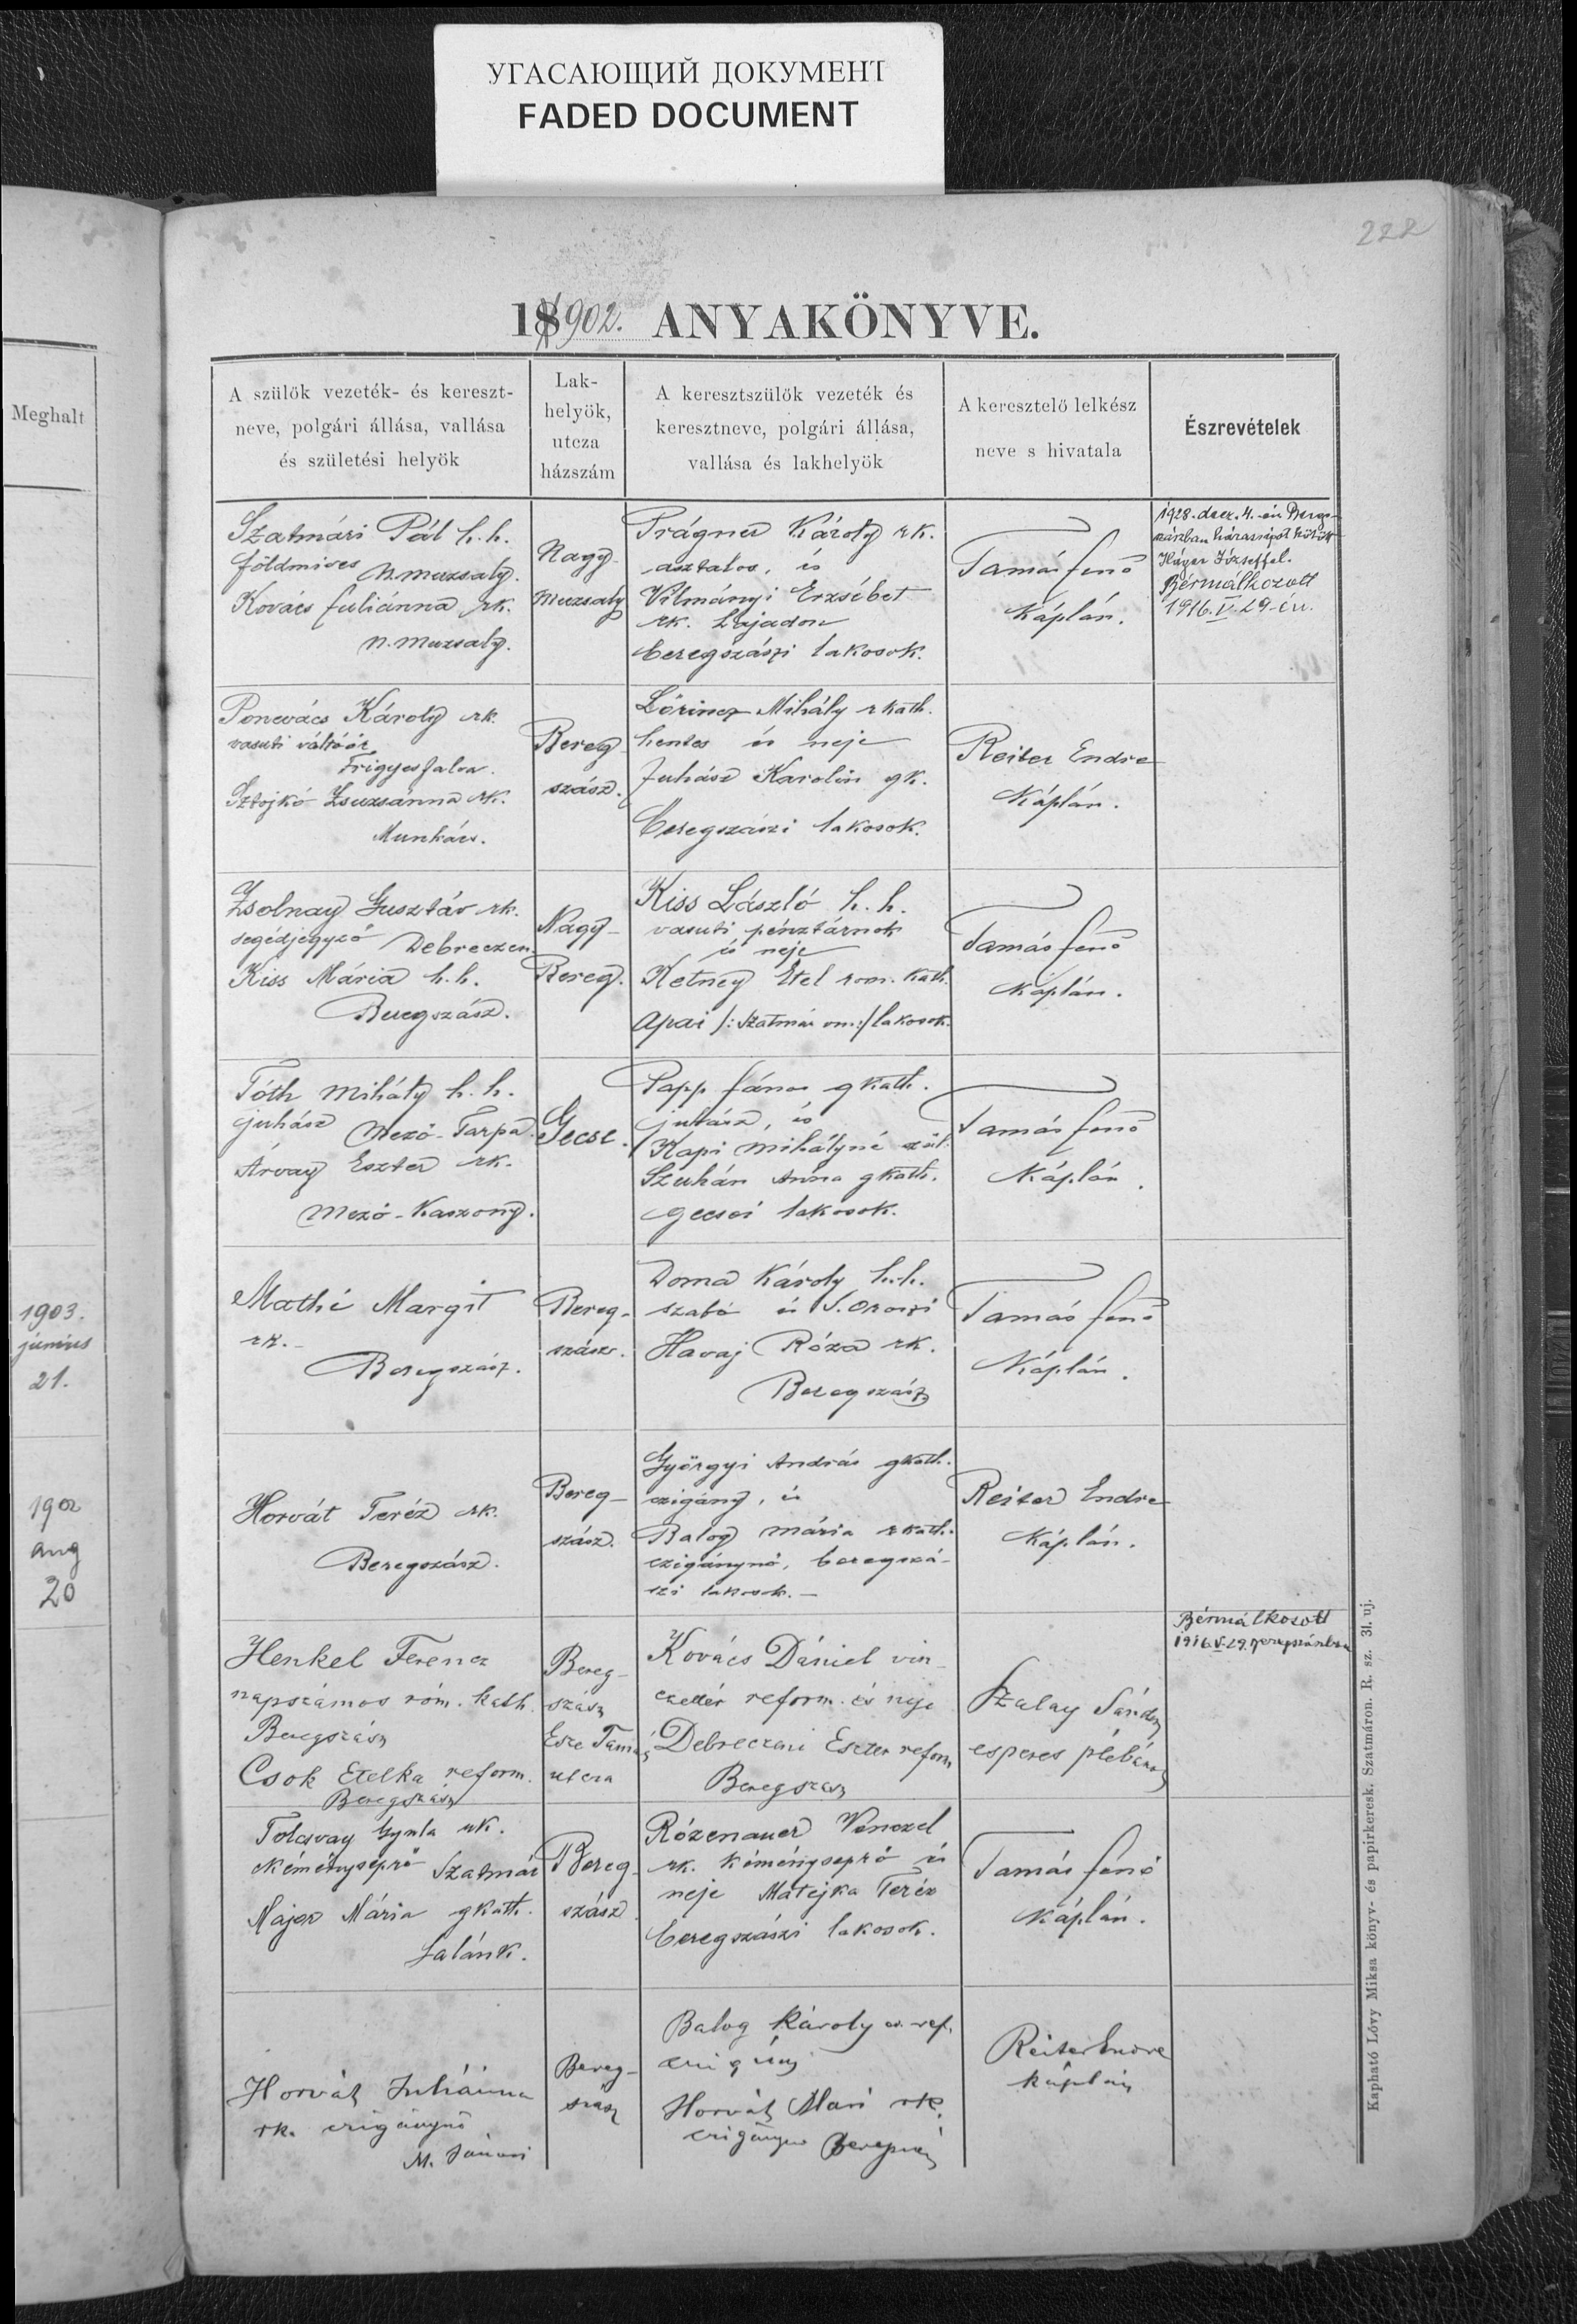 УГАСАЮЩИЙ ДОКУМЕНТ
FADED DOCUMENT
222
Meghalt
1903.
június
21.
1902
aug
20
1902. ANYAKÖNYVE.
A szülök vezeték- és kereszt-
neve, polgári állása, vallása
és születési helyök
Lak-
helyök,
utcza
házszám
A keresztszülök vezeték és
keresztneve, polgári állása,
vallása és lakhelyök
A keresztelő lelkész
neve s hivatala
Észrevételek
Szatmári Pál h. h.
földmives N. muzsaly.
Kovács Juliánna rk.
N. muzsaly.
Nagy-
muzsaly
Prágner Károly rk.
asztalos, és
Vilmányi Erzsébet
rk. hajadon
beregszászi lakosok.
Tamás Jenő
Káplán.
1928. decz. 4.-én Bereg-
szászban házasságot kötött
Józseffel.
Bérmálkozott
1916. V. 29-én.
Ponevács Károly rk.
vasuti váltóőr
Frigyesfalva.
Sztojkó Zsuzsánna rk.
Munkács.
Bereg-
szász.
Lőrincz Mihály rkath.
hentes és neje
Juhász Karolin gk.
beregszászi lakosok.
Reiter Endre
Káplán.
Zsolnay Gusztáv rk.
segédjegyző Debreczen.
Kiss Mária h. h.
Beregszász.
Nagy-
Bereg.
Kiss László h. h.
vasuti pénztárnok
és neje
Ketney Etel rom. kath.
apai /: Szatmár vm :/ lakosok.
Tamás Jenő
Káplán.
Tóth Mihály h. h.
juhász Mező-Tarpa.
Árvay Eszter rk.
Mező-Kaszony.
Gecse.
Papp János gkath.
juhász, és
Kapi Mihályné szül.
Szuhán Anna gkath.
gecsei lakosok.
Tamás Jenő
Káplán.
Mathé Margit
rk.-
Beregszász.
Bereg-
szász.
Doma Károly h. h.
szabó és
Havaj Róza rk.
Beregszász
Tamás Jenő
Káplán.
Horvát Teréz rk.
Beregszász.
Bereg-
szász.
Györgyi András gkath.
czigány, és
Balog mária rkath.
czigánynő, beregszá-
szi lakosok.-
Reiter Endre
Káplán.
Henkel Ferencz
napszámos róm. kath.
Beregszász
Csok Etelka reform.
Beregszász
Bereg-
szász
Esze Tamás
utcza
Kovács Dániel vin-
czellér reform. és neje
Debreczeni Eszter reform
Beregszász
Szalay Sándor
esperes plébános
Bérmálkozott
1916. V. 29. Beregszászban
Tolcsvay Gyula rk.
kéményseprő Szatmár
Major Mária gkath.
Salánk.
Bereg-
szász
Rózenauer Venczel
rk. kéményseprő és
neje Matejka Teréz
beregszászi lakosok.
Tamás Jenő
Káplán.
Horváth Juliánna
rk. czigánynő
Bereg-
szász
Balog Károly ev. ref.
czigány
Horváth Mari rk.
czigánynő Beregszász
Reiter Endre
káplán
Kapható Lóvy Miksa könyv- és papirkeresk. Szatmáron. R. sz. 3l. uj.